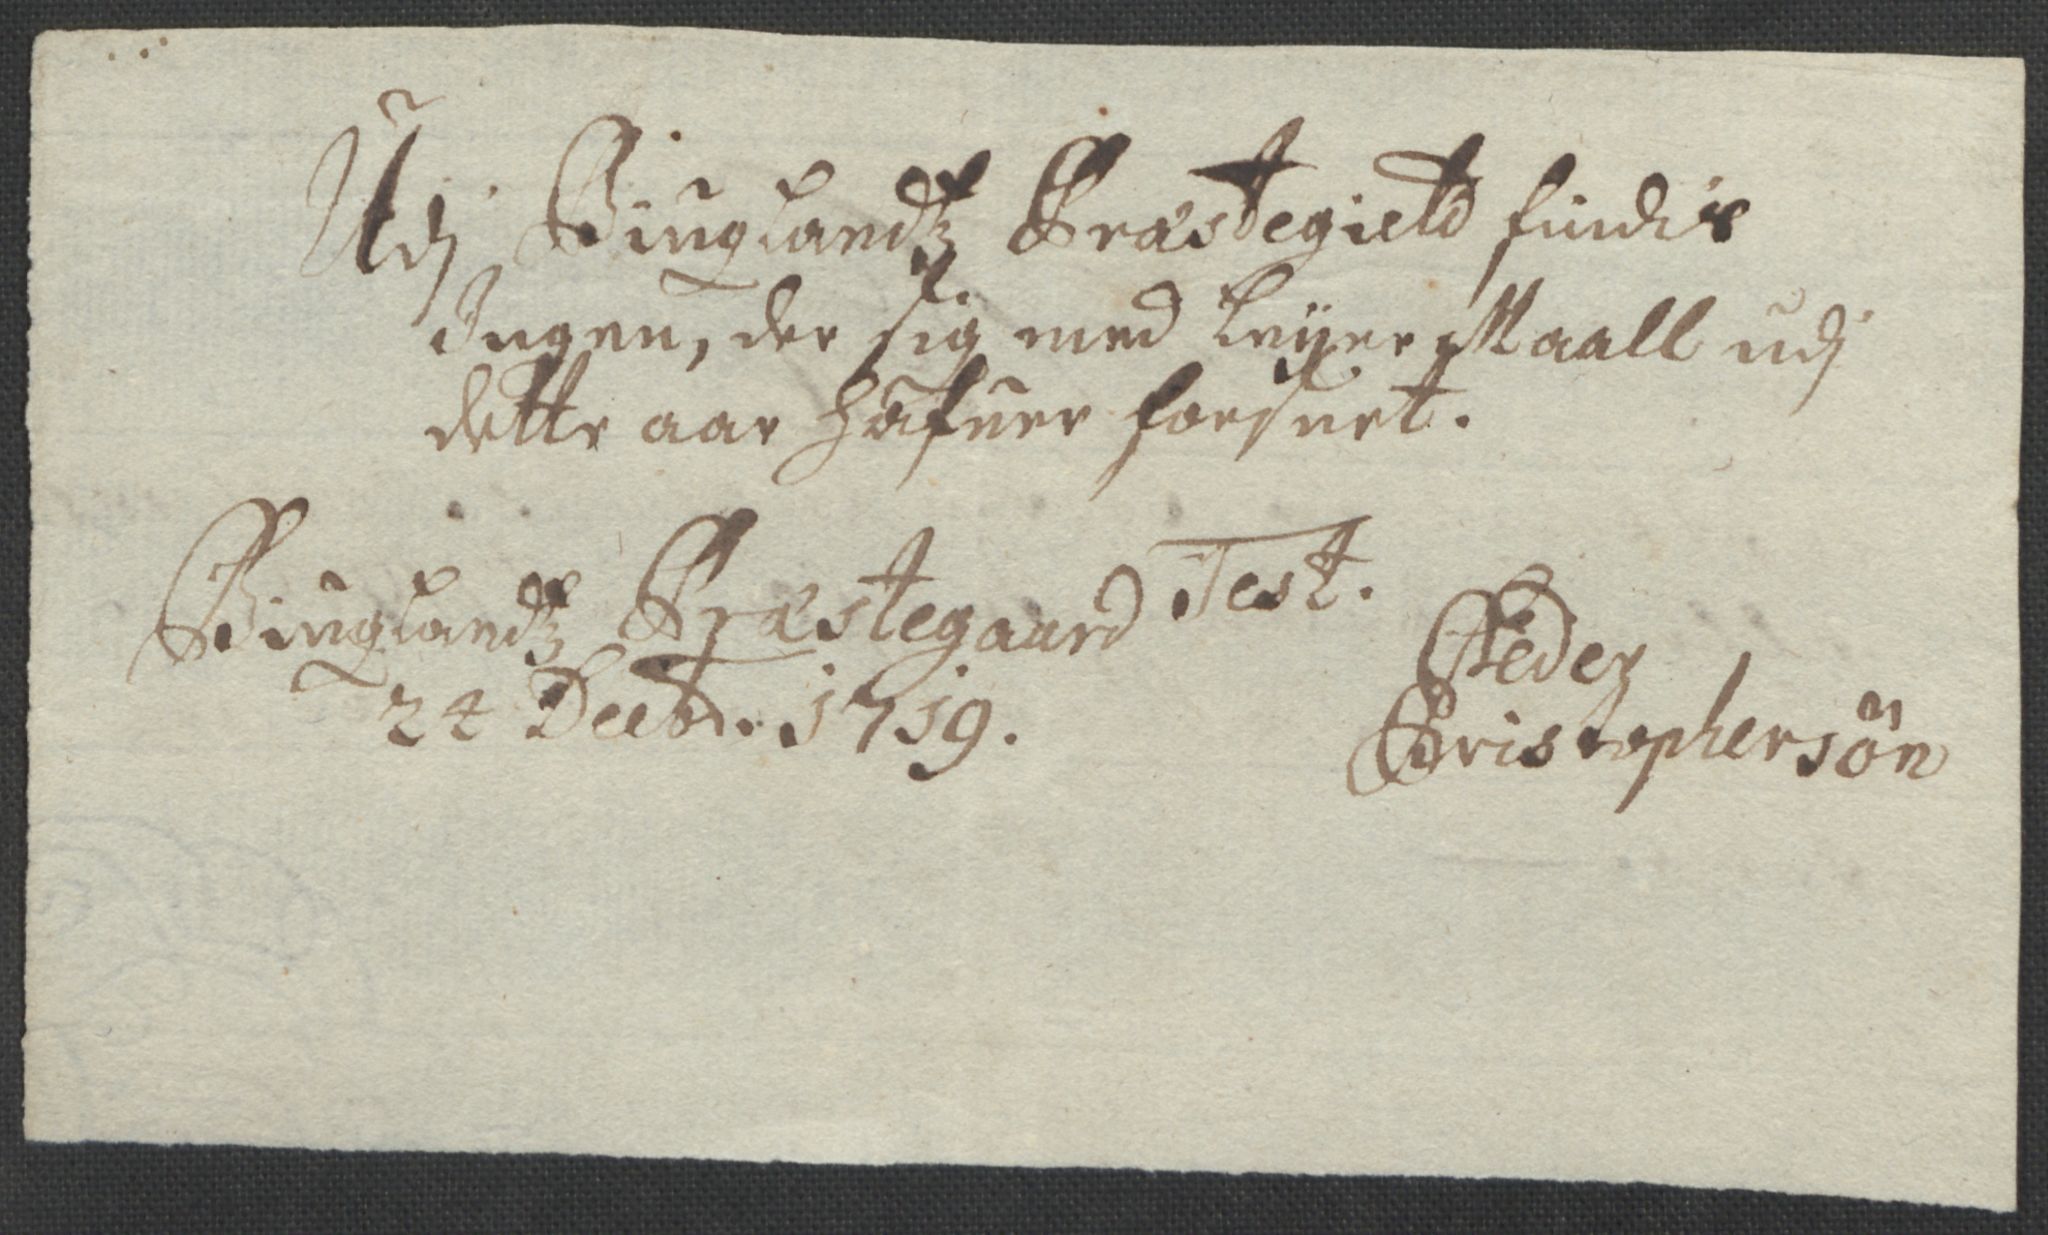 Udj Biuglandtz Præstegield findis
Ingen, der sig med Leyer Maall udj
dette aar hafuer forseet.
Biuglandtz Præstegaard Test.
24 Decbr. 1719.
Peder
Christophersön